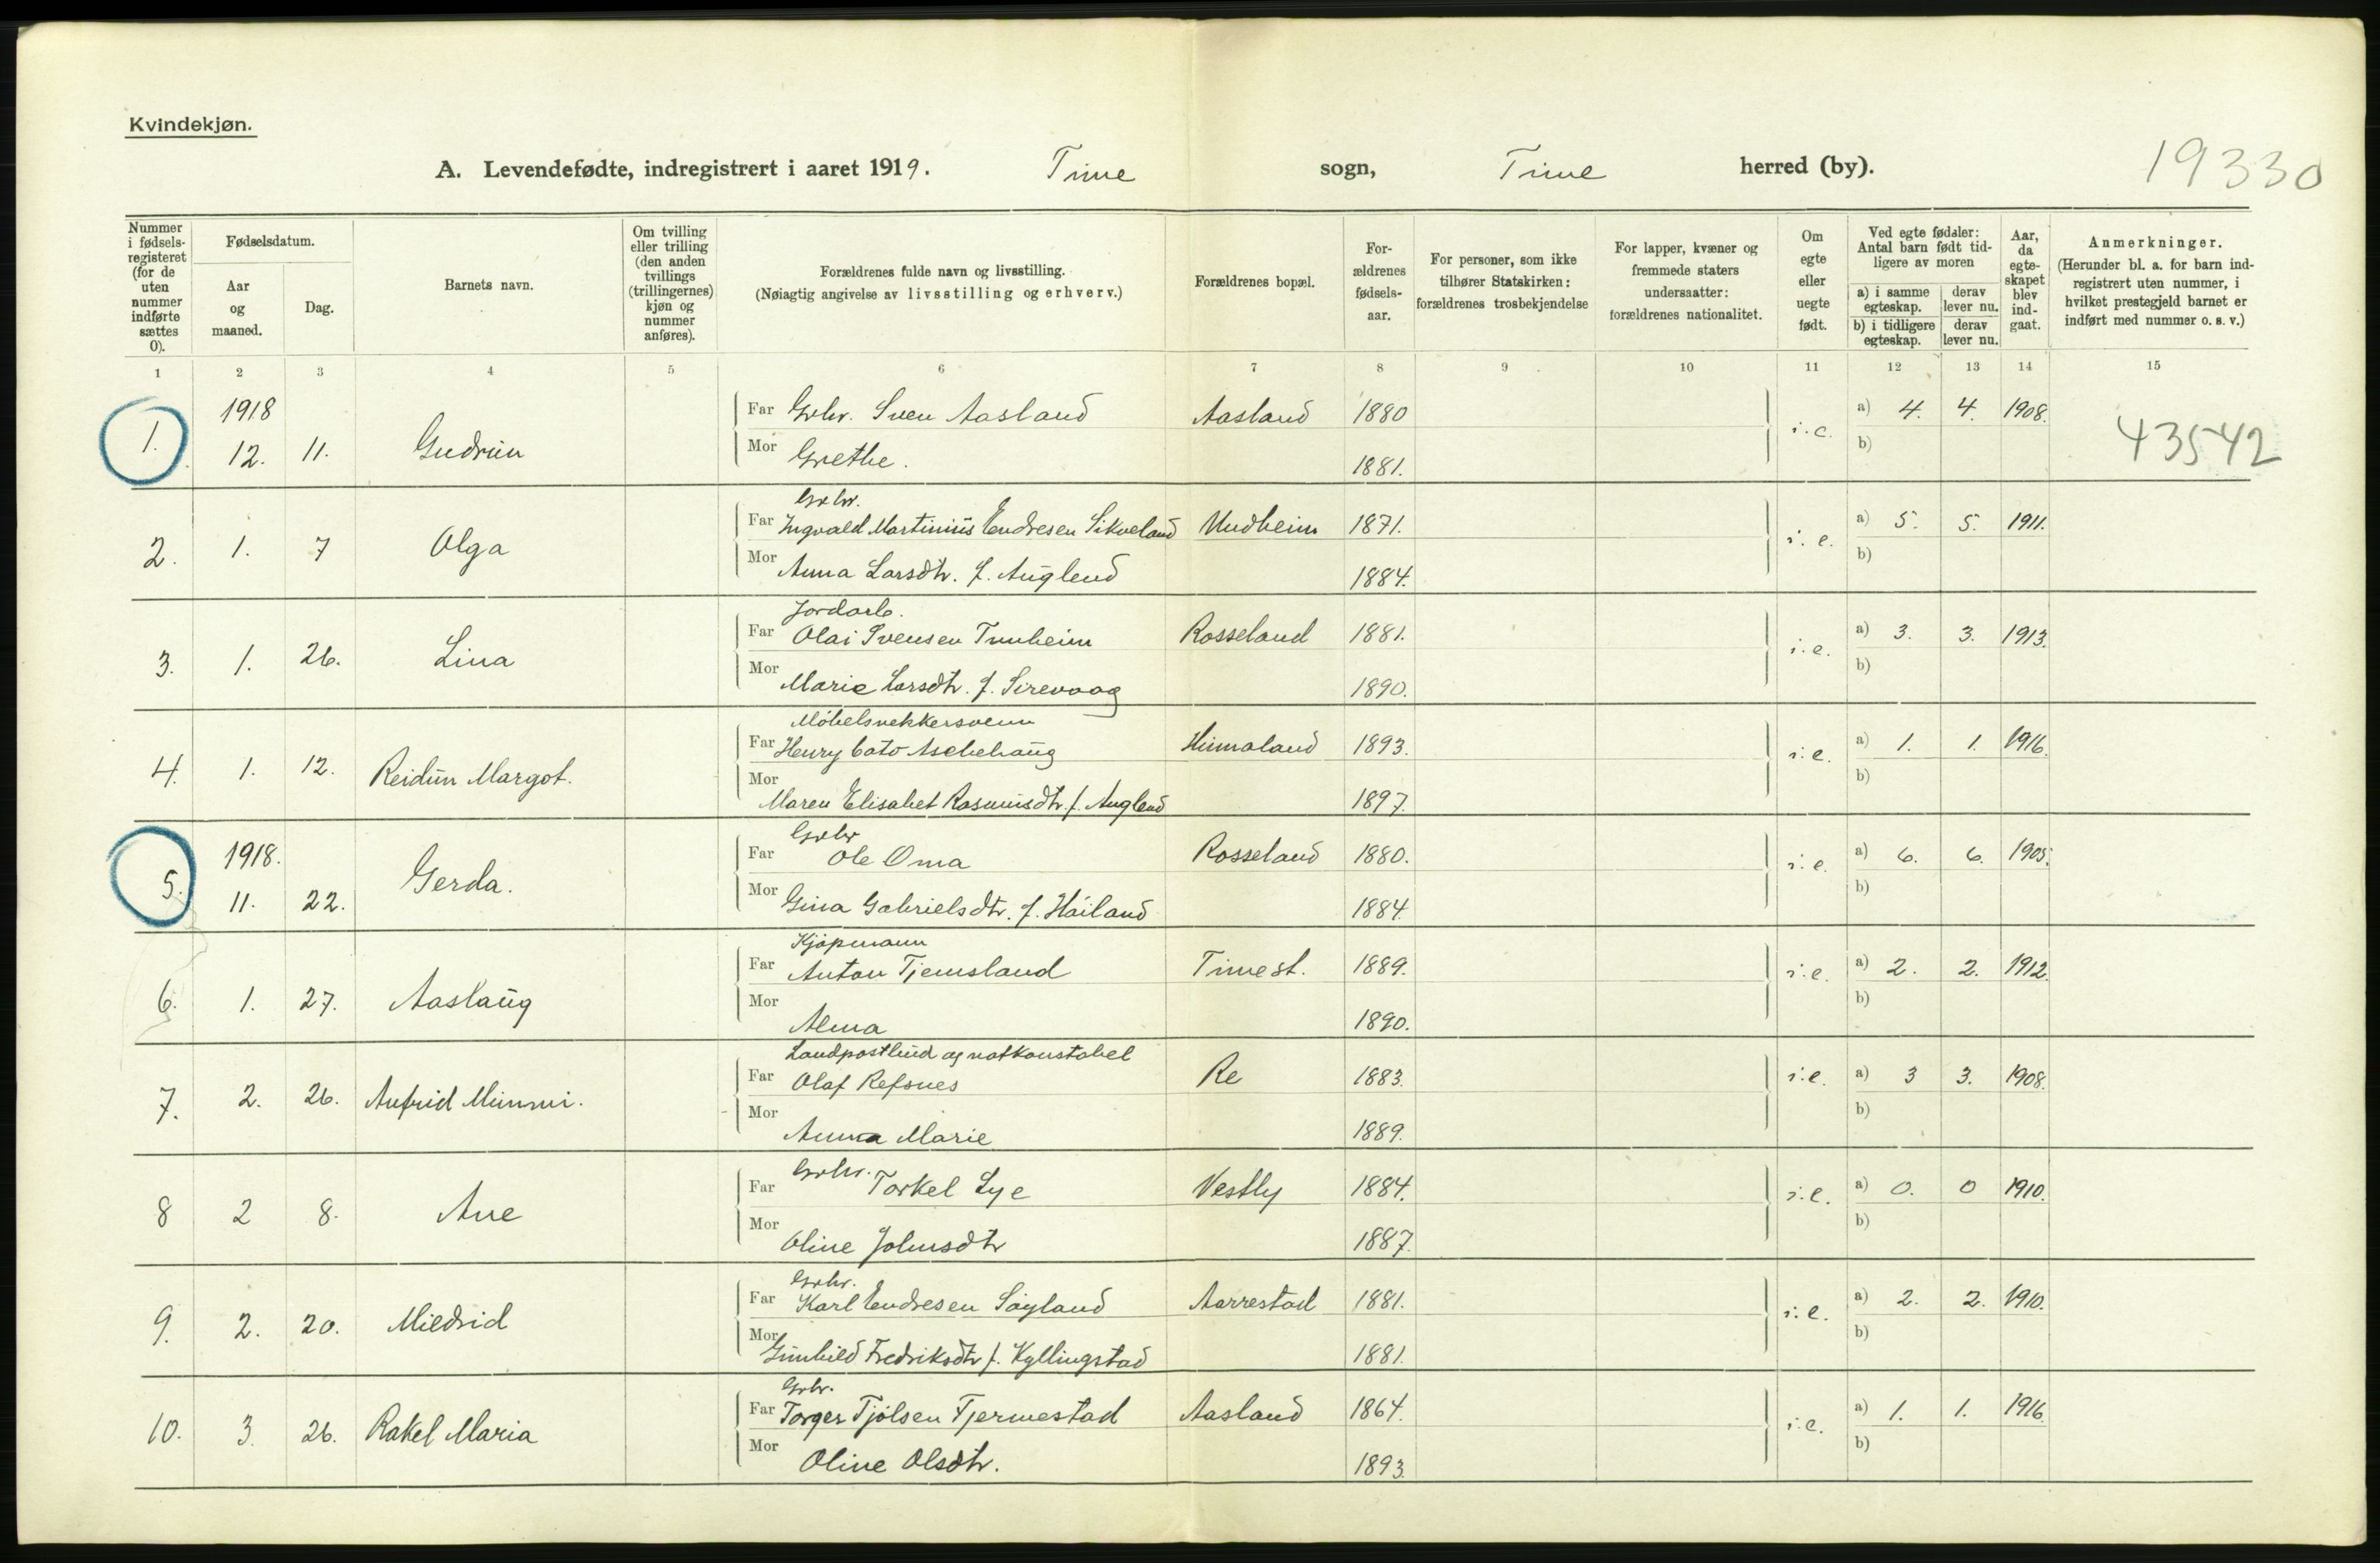 Kvindekjøn.
A. Levendefødte, indregistrert i aaret 1919. Time sogn, Time herred (by). 19330
Nummer i fødsels-registeret (for de uten nummer indførte sættes 0).
Fødselsdatum.
Aar og maaned.
Dag.
Barnets navn.
Om tvilling eller trilling (den anden tvillings (trillingernes) kjøn og nummer anføres).
Forældrenes fulde navn og livsstilling.
(Nøiagtig angivelse av livsstilling og erhverv.)
Forældrenes bopæl.
For-ældrenes fødsels-aar.
For personer, som ikke tilhører Statskirken: forældrenes trosbekjendelse
For lapper, kvæner og fremmede staters undersaatter: forældrenes nationalitet.
Om egte eller uegte født.
Ved egte fødsler: Antal barn født tid-ligere av moren
a) i samme egteskap. derav lever nu.
b) i tidligere egteskap. derav lever nu.
Aar, da egte-skapet blev ind-gaat.
Anmerkninger.
(Herunder bl. a. for barn ind-registrert uten nummer, i hvilket prestegjeld barnet er indført med nummer o. s. v.)
1 2 3 4 5 6 7 8 9 10 11 12 13 14 15
1918
Far Grbr. Sven Aasland Aasland 1880 a) 4. 4. 1908.
1. 12. 11. Gudrun i.e. 43542
Mor Grethe. 1881. b)
Grbr.
Far Ingvald Martinius Endresen Sikveland Undheim 1871. a) 5. 5. 1911.
2. 1. 7 Olga i.e.
Mor Anna Larsdtr. f. Auglend 1884. b)
Jordarb.
Far Olai Svensen Tunheim Rosseland 1881. a) 3. 3. 1913.
3. 1. 26. Lina i.e.
Mor Marie Larsdtr. f. Sirevaag 1890. b)
Møbelsnekkersvenn
Far Henry Cato Aschehaug Humaland 1893. a) 1. 1. 1916.
4. 1. 12. Reidun Margot. i.e.
Mor Maren Elisabet Rasmusdtr. f. Auglend 1897. b)
1918. Grbr
Far Ole Oma Rosseland 1880. a) 6. 6. 1905.
5. 11. 22. Gerda. i.e.
Mor Gina Gabrielsdtr. f. Håiland 1884. b)
Kjøpmann
Far Anton Tjemsland Time st. 1889. a) 2. 2. 1912.
6. 1. 27. Aaslaug i.e.
Mor Alma 1890. b)
Landpostbud og natkonstabel
Far Olaf Refsnes Re 1883. a) 3 3. 1908.
7. 2. 26. Anfrid Mimmi. i.e.
Mor Anna Marie 1889. b)
Grbr.
Far Torkel Lye Vestly 1884. a) 0. 0 1910.
8 2 8. Ane i.e.
Mor Oline Johnsdtr 1887. b)
Grbr.
Far Karl Endresen Søyland Aarrestad 1881. a) 2. 2. 1910.
9. 2. 20. Mildrid i.e.
Mor Gunhild Fredriksdtr f. Kyllingstad 1881. b)
Grbr.
Far Torger Tjølsen Tjermestad Aasland 1864. a) 1. 1. 1916.
10. 3. 26. Rakel Maria i.e.
Mor Oline Olsdtr. 1893. b)